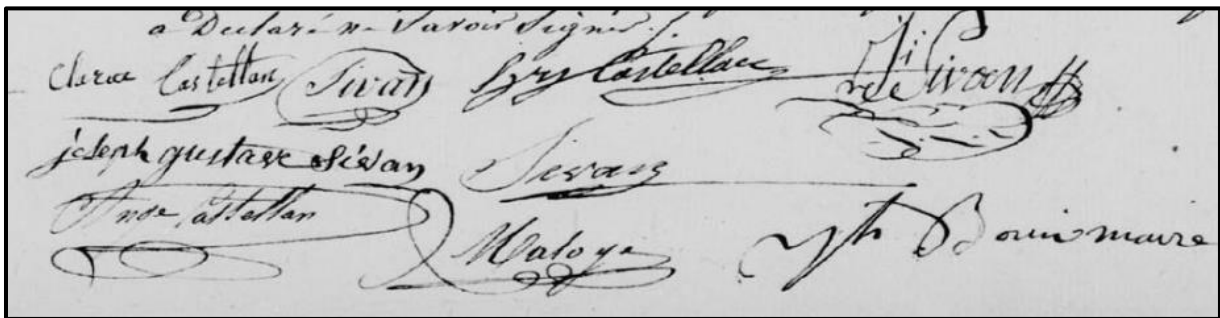 a Declaré ne Savoir Signer /.
Clarice Castellan Sivan Castellan Sivan
joseph gustave Sivan Sivan
Ange Castellan Maloye Bouin maire